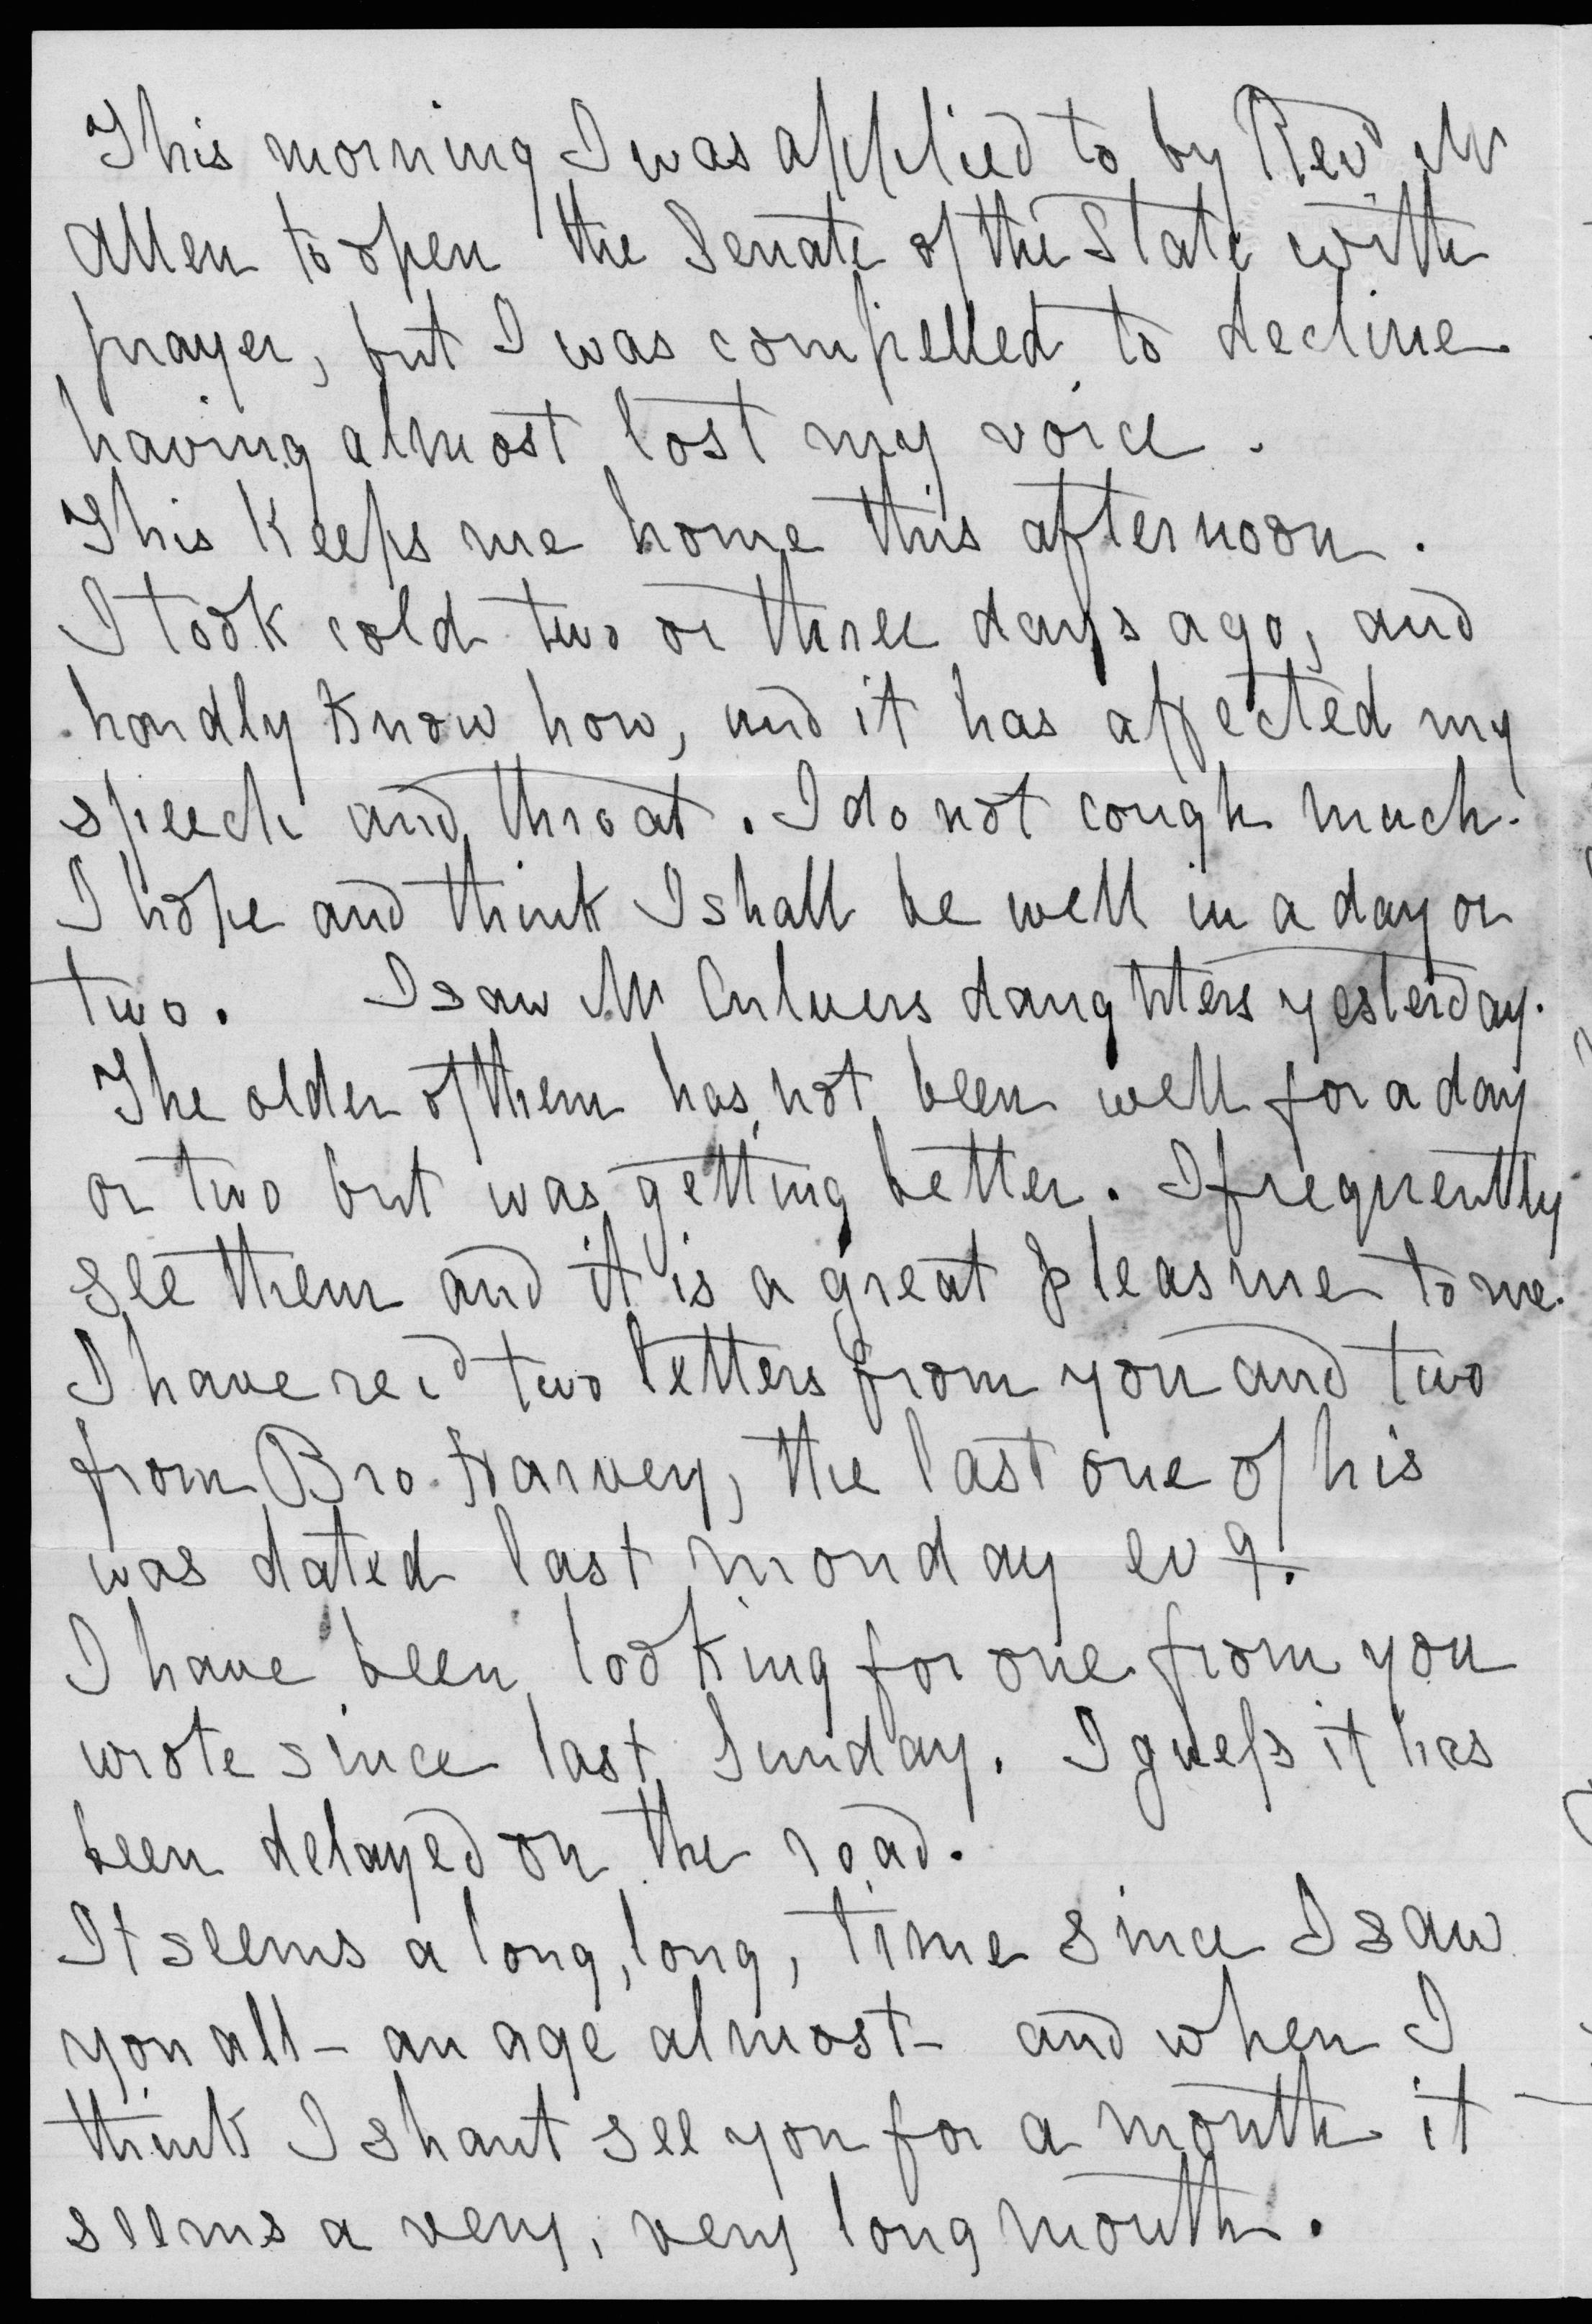 This morning I was applied to by Revd Mr
Allen to open the Senate of the State with
prayer, but I was compelled to decline
having almost lost my voice.
This keeps me home this afternoon.
I took cold two or three days ago, and
hardly know how, and it has affected my
speech and throat. I do not cough much.
I hope and think I shall be well in a day or
two. I saw Mr Culvers daughters yesterday.
The older of them has not been well for a day
or two but was getting better. I frequently
see them and it is a great pleasure to me.
I have recd two letters from you and two
from Bro. Harvey, the last one of his
was dated last monday evg.
I have been looking for one from you
wrote since last Sunday. I guess it has
been delayed on the road.
It seems a long, long, time since I saw
you all – an age almost – and when I
think I shant see you for a month it
seems a very, very long month.